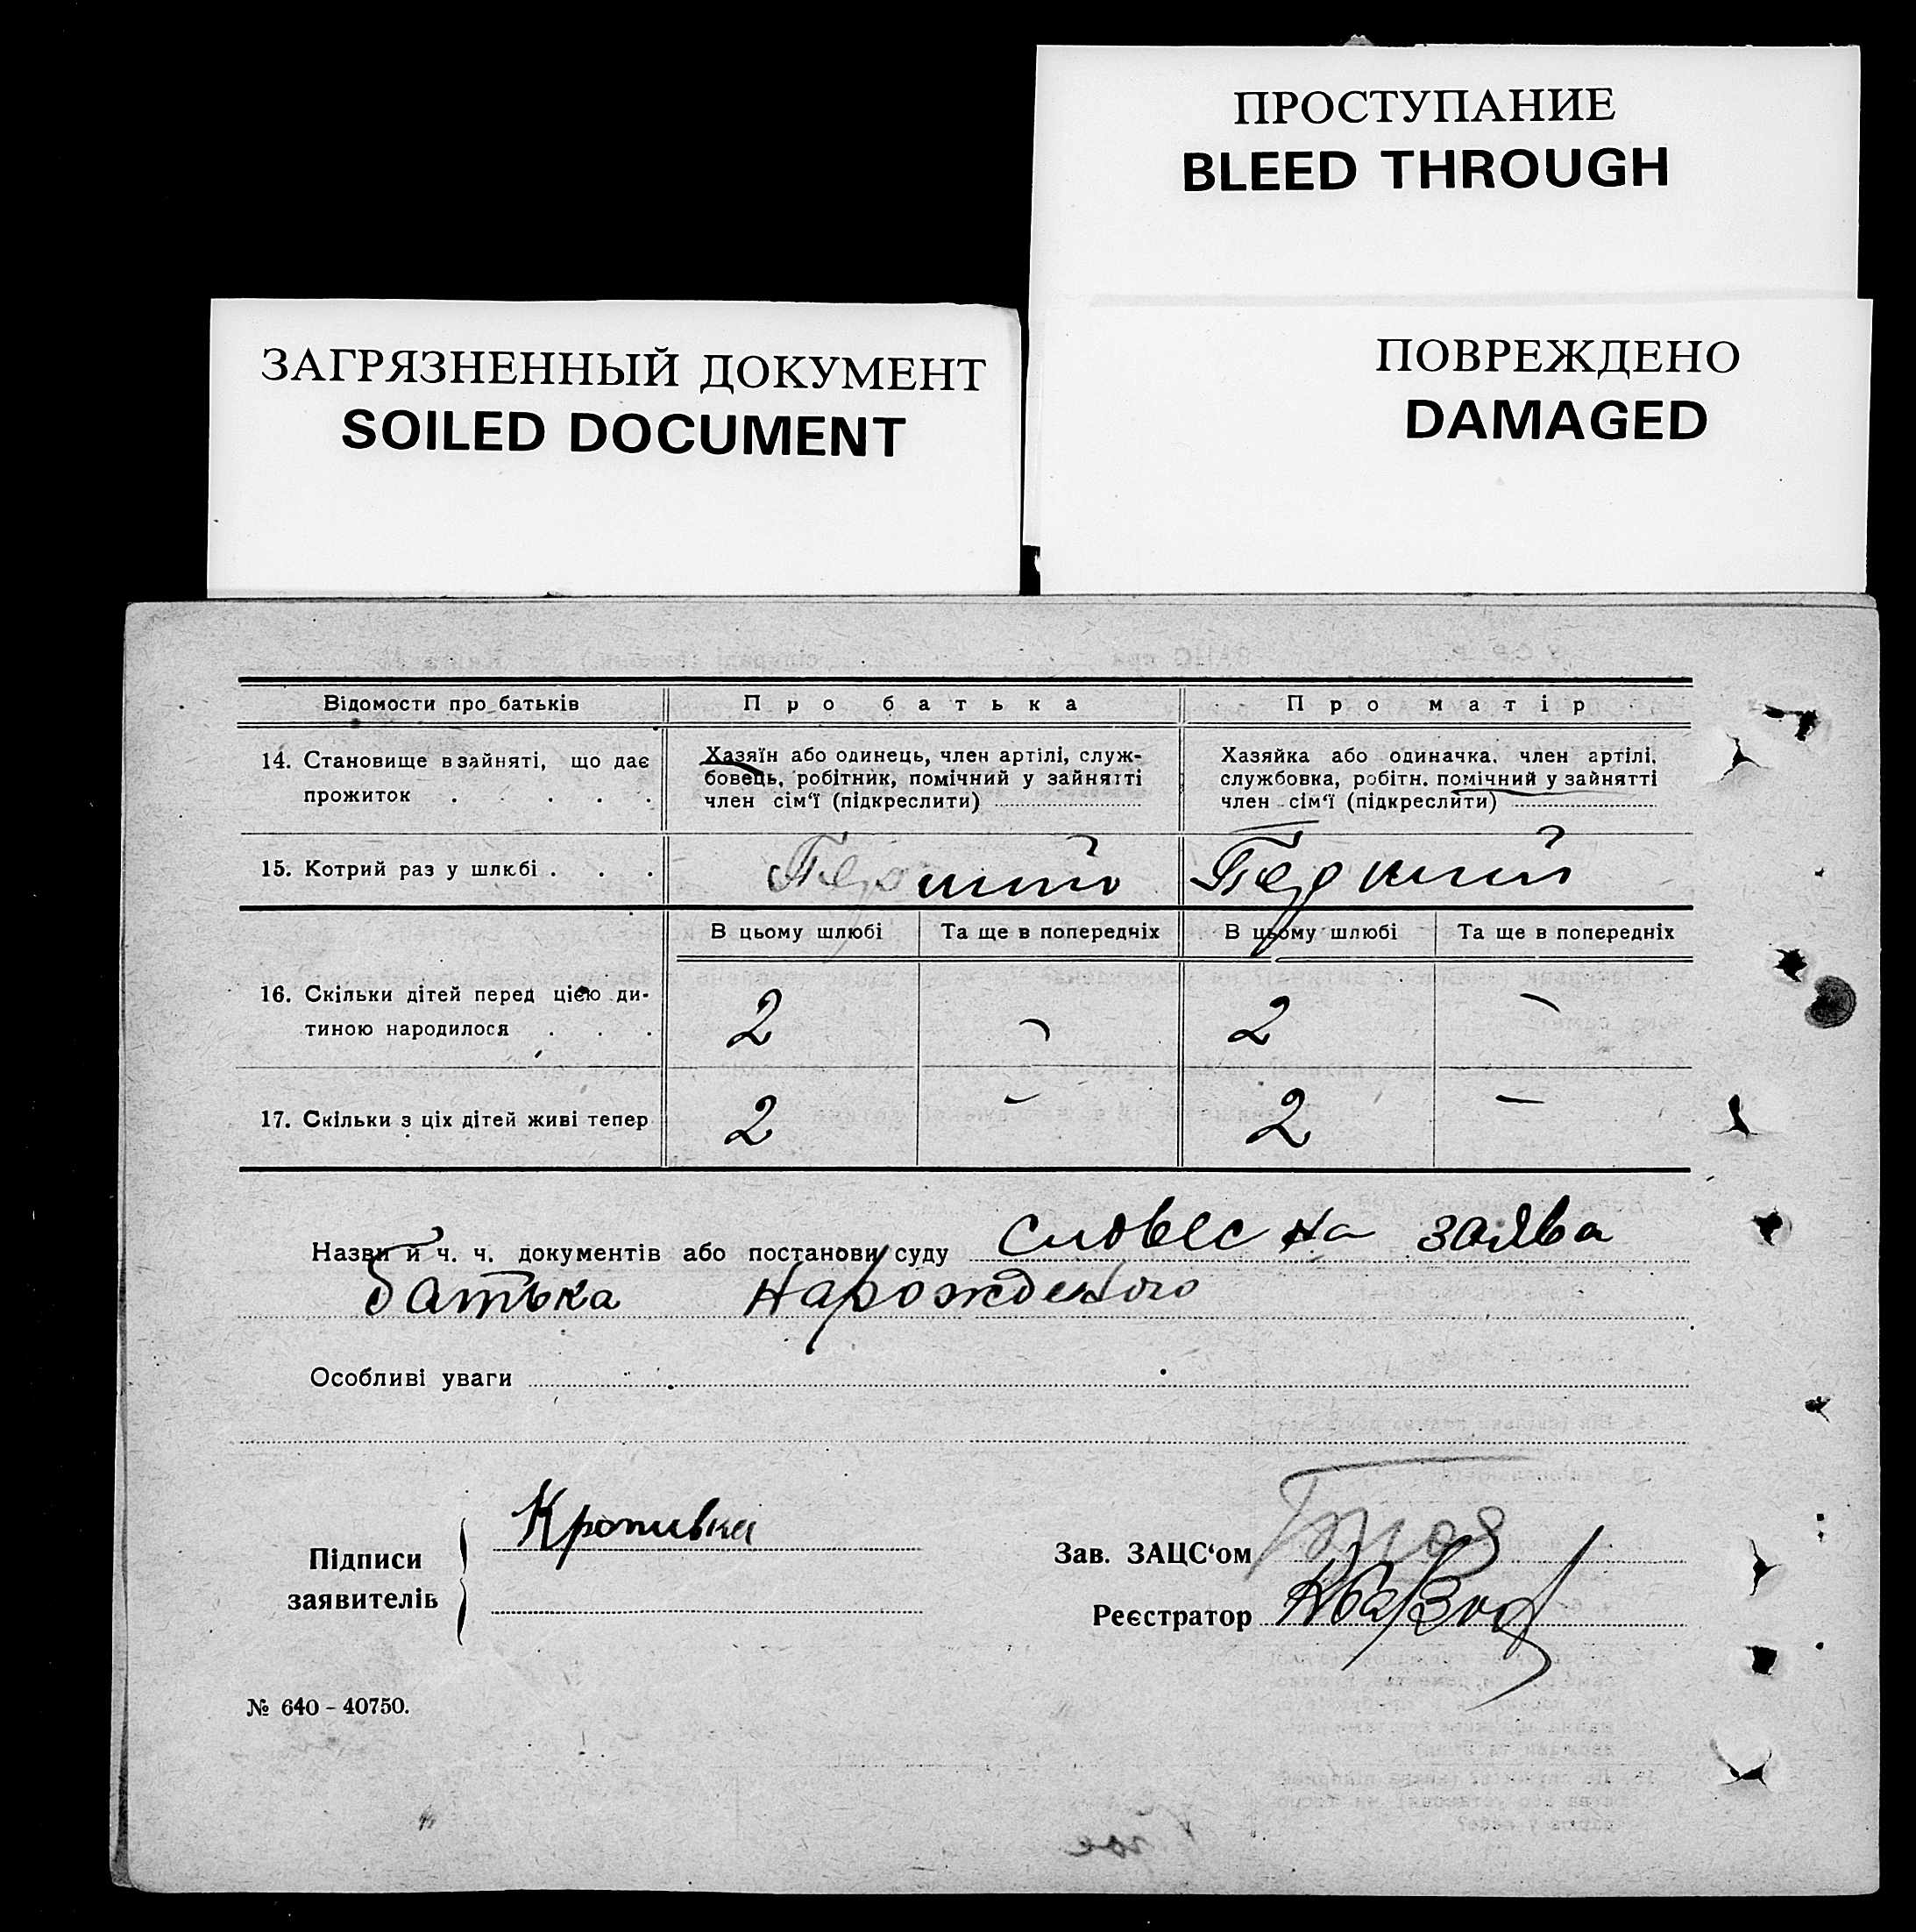 ПРОСТУПАНИЕ
BLEED THROUGH
ЗАГРЯЗНЕННЫЙ ДОКУМЕНТ
SOILED DOCUMENT
ПОВРЕЖДЕНО
DAMAGED
Відомости про батьків
Про батька
Про матір
14. Становище в зайняті, що дає
прожиток . . . . .
Хазяїн або одинець, член артілі, служ-
бовець, робітник, помічний у зайнятті
член сім'ї (підкреслити)
Хазяйка або одиначка, член артілі,
службовка, робітн. помічний у зайнятті
член сім'ї (підкреслити)
15. Котрий раз у шлюбі . . .
Перший
Перший
В цьому шлюбі
Та ще в попередніх
В цьому шлюбі
Та ще в попередніх
16. Скільки дітей перед цією ди-
тиною народилося . . .
2
—
2
—
17. Скільки з ціх дітей живі тепер
2
—
2
—
Назви й ч. ч. документів або постанови суду словесна заява
батька нарожденого
Особливі уваги
Підписи
заявителів
Кропивка
Зав. ЗАЦС'ом
Реєстратор
№ 640 - 40750.